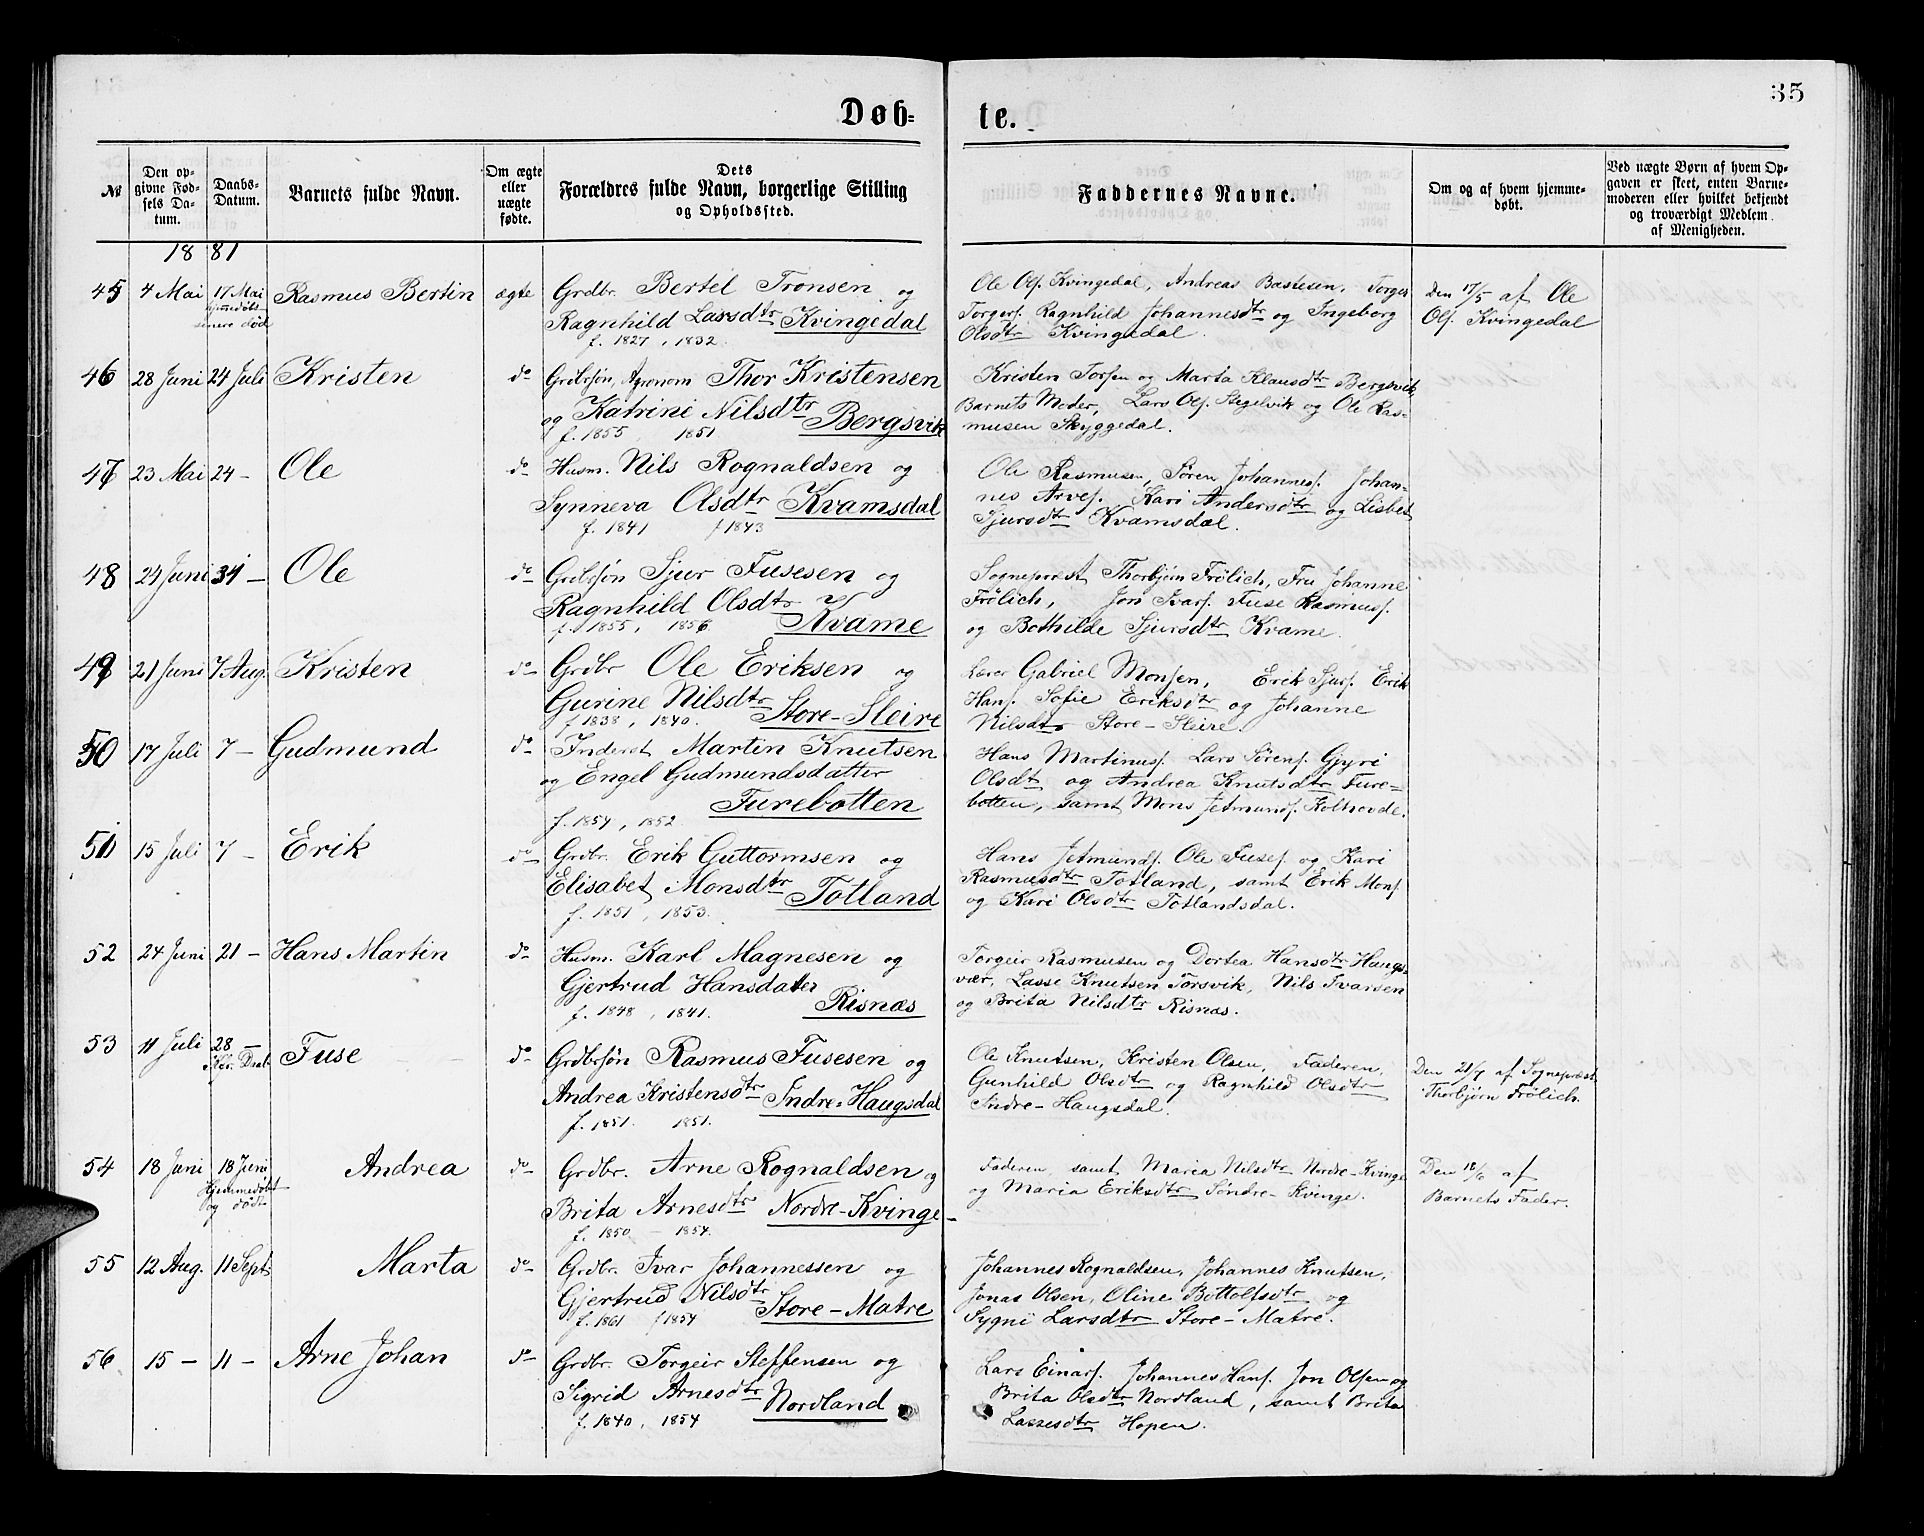 35
Døb= te.
№
Den op-
givne Fød-
sels Da-
tum.
Daabs-
Datum.
Barnets fulde Navn.
Om ægte
eller
uægte
fødte.
Dets
Forældres fulde Navn, borgerlige Stilling
og Opholdssted.
Faddernes Navne.
Om og af hvem hjemme-
døbt.
Ved uægte Børn af hvem Op-
gaven er skeet, enten Barne-
moderen eller hvilket bekjendt
og troværdigt Medlem
af Menigheden.
1881
45 4 Mai 17 Mai Rasmus Bertin ægte Grdbr. Bertel Tronsen og
hjemmedøbt
senere død
Ragnhild Lassdtr Kvingedal
f. 1827, 1832.
Ole Ols. Kvingedal, Andreas Bastesen, Torger
Torgers. Ragnhild Johannesdtr og Ingeborg
Olsdtr Kvingedal.
Den 17/5 af Ole
Ols. Kvingedal
46 28 Juni 24 Juli Kristen do Grdbrsøn, Agronom Thor Kristensen
og Katrine Nilsdtr Bergsvik
f. 1855 1851.
Kristen Torsen og Marta Klausdtr Bergsvik,
Barnets Moder, Lars Ols. Stegelvik og Ole Ras-
musen Skyggedal.
47 23 Mai 24 – Ole do Husm. Nils Rognaldsen og
Synneva Olsdtr Kvamsdal
f. 1841 f 1843
Ole Rasmusen, Søren Johanness. Johan-
nes Arves. Kari Andersdtr og Lisbet
Sjursdtr Kvamsdal.
48 24 Juni 31 – Ole do Grdbrsøn Sjur Fusesen og
Ragnhild Olsdtr Kvame
f. 1855, 1856.
Sogneprest Thorbjørn Frölich, Fru Johanne
Frölich, Jon Ivars. Fuse Rasmuss.
og Bothilde Sjursdtr Kvame.
49 21 Juni 7 Aug. Kristen do Grdbr Ole Eriksen og
Gurine Nilsdtr Store-Sleire
f 1838, 1840.
Lærer Gabriel Monsen, Erik Sjurs. Erik
Hans. Sofie Eriksdtr og Johanne
Nilsdtr Store-Sleire.
50 17 Juli 7 – Gudmund do Inderst Martin Knutsen
og Engel Gudmundsdatter
Furebotten
f. 1854, 1852.
Hans Martinus. Lars Sørens. Gjyri
Olsdt og Andrea Knutsdtr Fure=
botten, samt Mons Jetmunds. Kolhovde.
51 15 Juli 7 – Erik do Grdbr. Erik Guttormsen og
Elisabet Monsdtr Totland
f. 1851, 1853.
Hans Jetmunds. Ole Fuses. og Kari
Rasmusdtr Totland, samt Erik Mons.
og Kari Olsdtr Totlandsdal.
52 24 Juni 21 – Hans Martin do Husm. Karl Magnesen og
Gjertrud Hansdatter Risnæs
f. 1848, 1841.
Torgeir Rasmusen og Dortea Hansdtr Haugs-
vær, Lasse Knutsen Torsvik, Nils Ivarsen
og Brita Nilsdtr Risnæs.
53 11 Juli 28 – Fuse do Grdbrsøn Rasmus Fusesen og
Andrea Kristensdtr Indre-Haugsdal
f. 1851. 1851.
Ole Knutsen, Kristen Olsen, Faderen,
Gunhild Olsdtr og Ragnhild Olsdtr
Indre-Haugsdal.
Den 21/7 af Sogneprest
Thorbjørn Frölich.
54 18 Juni 18 Juni Andrea do Grdbr. Arne Rognaldsen og
Hjemmedøbt
og død
Brita Arnesdtr Nordre-Kvinge
f. 1850 – 1854.
Faderen, samt Maria Nilsdtr Nordre-Kvinge
og Maria Eriksdtr Søndre-Kvinge.
Den 18/6 af
Barnets Fader.
55 12 Aug. 11 Sept. Marta do Grdbr. Ivar Johannessen og
Gjertrud Nilsdtr Store-Matre
f. 1861 f 1854
Johannes Rognaldsen, Johannes Knutsen,
Jonas Olsen, Oline Bottolfsdtr og
Sygni Larsdtr Store-Matre.
56 15 – 11 – Arne Johan do Grdbr. Torgeir Steffensen og
Sigrid Arnesdtr Nordland
f. 1840, 1854
Lars Einars. Johannes Hans. Jon Olsen og
Brita Olsdtr Nordland, samt Brita
Lassesdtr Hopen.